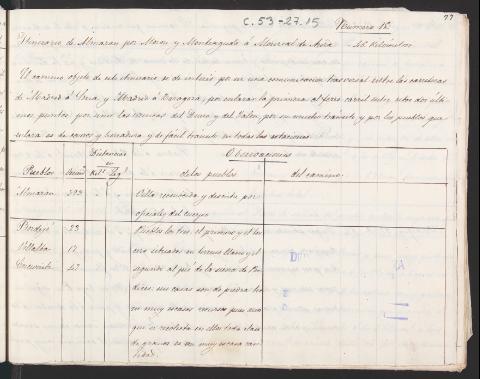 77
C. 53-27.15
Numero 12
Itinerario de Almazan por Moron y Monteagudo á Monreal de Ariza
El camino objeto de este itinerario es de interés por ser una comunicacion trasversal entre las carreteras
de Madrid á Soria, y Madrid á Zaragoza, por enlazar la primera al ferro carril entre estos dos últi-
mos puntos, por unir las cuencas del Duero y del Jalon, por su mucho transito y por los pueblos que
enlaza, es de carros y herradura y de fácil transito en todas las estaciones.
Distancias Observaciones
Pueblos en
Kil.s Leg.s de los pueblos del camino.
Almazan 393 Villa reconocida y descrita por
oficiales del cuerpo
23 Pueblos los tres, el primero y el ter-
Villalba 17 cero situados en terreno llano y el
47 segundo al pié de la sierra de
sus casas son de piedra
muy escasos recursos pues aun
que se recolecta en ellos toda clase
de granos es en muy escasa can-
tidad.